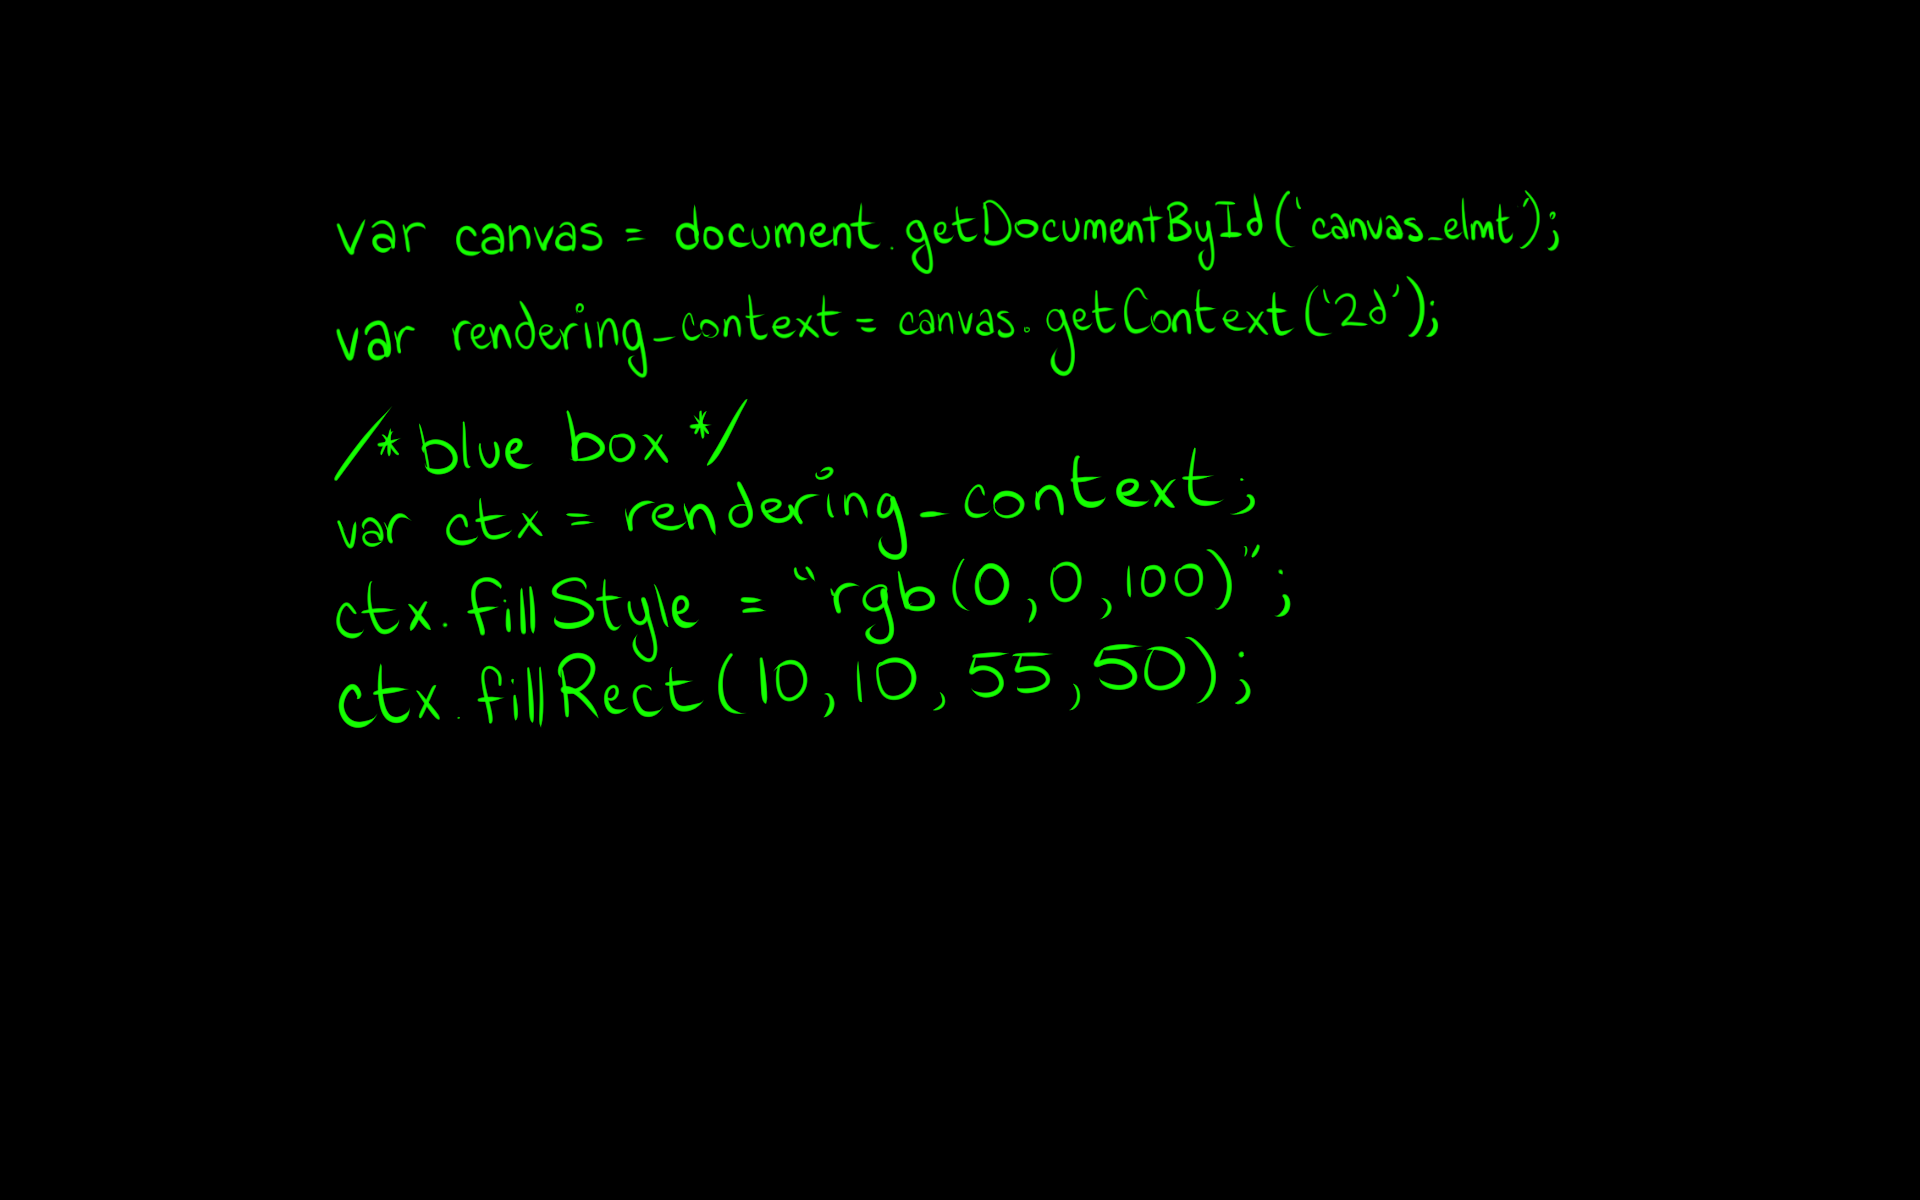 var canvas = document.getDocumentById('canvas_elmt');
var rendering_context = canvas.getContext('2d');
/* blue box */
var ctx = rendering_context;
ctx.fillStyle = "rgb(0,0,100)";
ctx.fillRect(10,10,55,50);